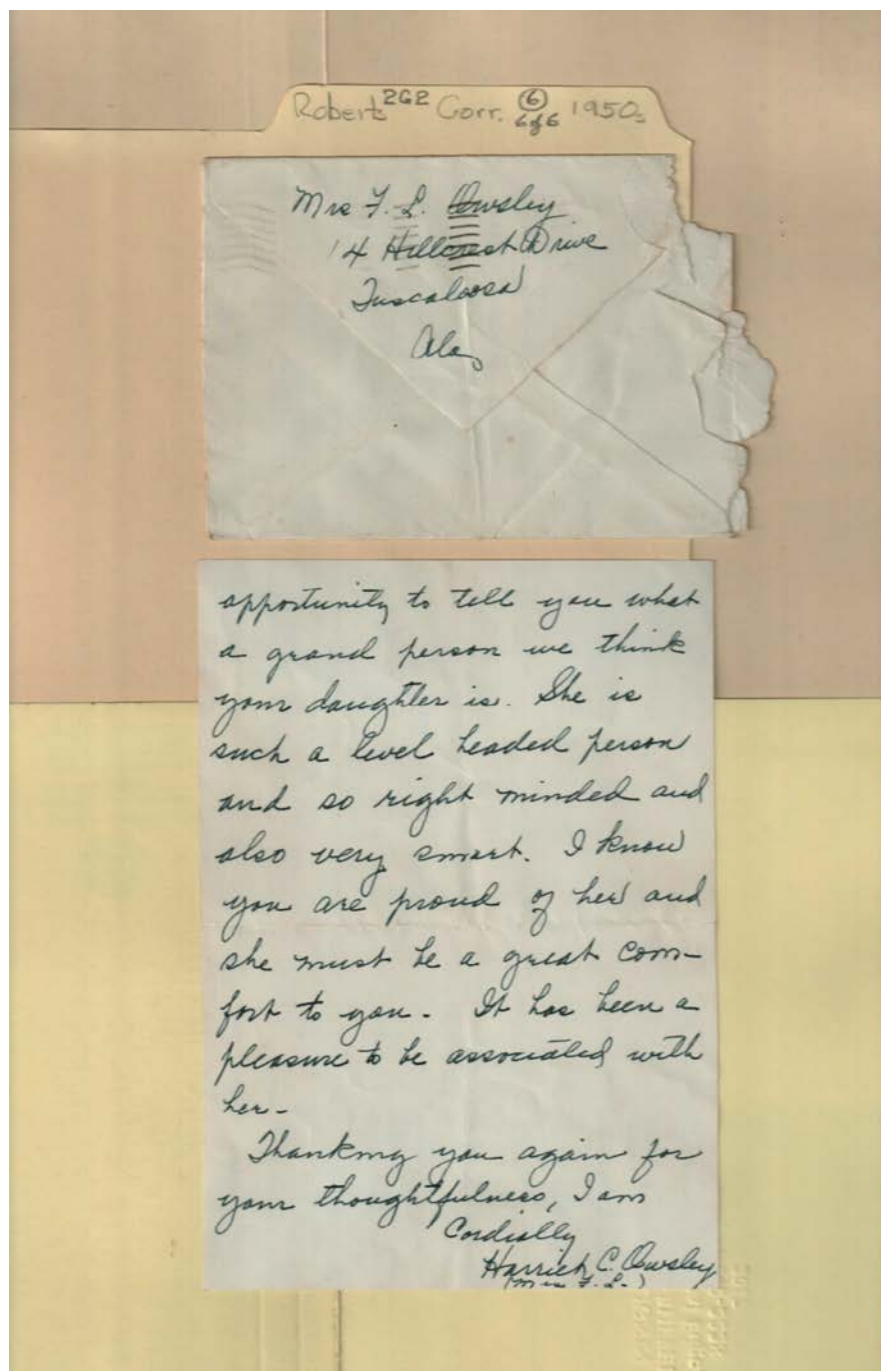 Roberts 262 Corr. 6 1950s
6 of 6
Mrs F. L. Owsley
14 Hillcrest Drive
Tuscaloosa
Ala,
opportunity to tell you what
a grand person we think
your daughter is. She is
such a level headed person
and so right minded and
also very smart. I know
you are proud of her and
she must be a great com-
fort to you - It has been a
pleasure to be associated with
her -
Thanking you again for
your thoughtfulness, I am
Cordially
Harriet C. Owsley
(Mrs F. L.)